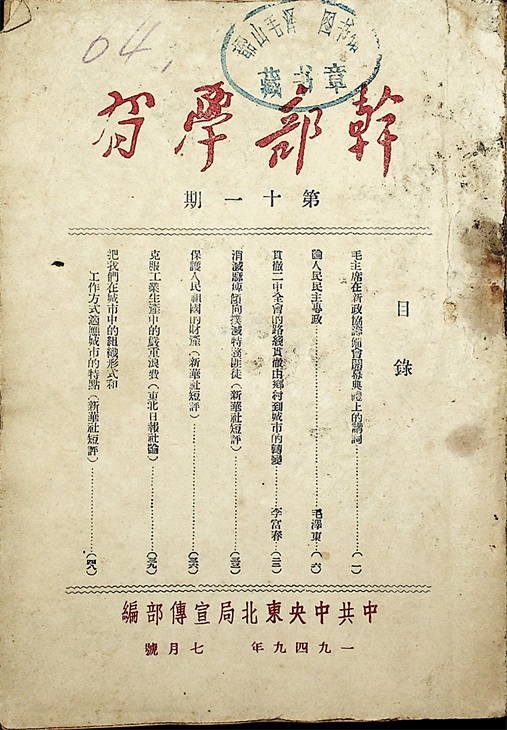 04.
韶山毛泽 图书
藏书章
幹部學習
第十一期
目錄
毛主席在新政協籌備會開幕典禮上的講詞……(一)
論人民民主專政……毛澤東……(六)
貫徹二中全會的路綫貫徹由鄉村到城市的轉變……李富春……(二二)
消滅麻痺傾向撲滅特務匪徒(新華社短評)……(三三)
保護人民祖國的財產(新華社短評)……(三六)
克服工業生產中的嚴重浪費(東北日報社論)……(三九)
把我們在城市中的組織形式和
工作方式適應城市的特點(新華社短評)……(四八)
中共中央東北局宣傳部編
一九四九年 七月號